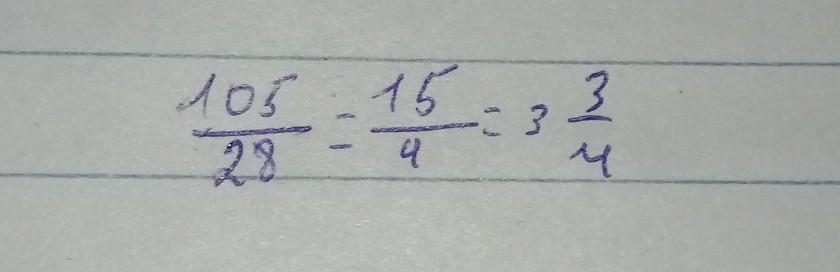 105/28 = 15/4 = 3 3/4